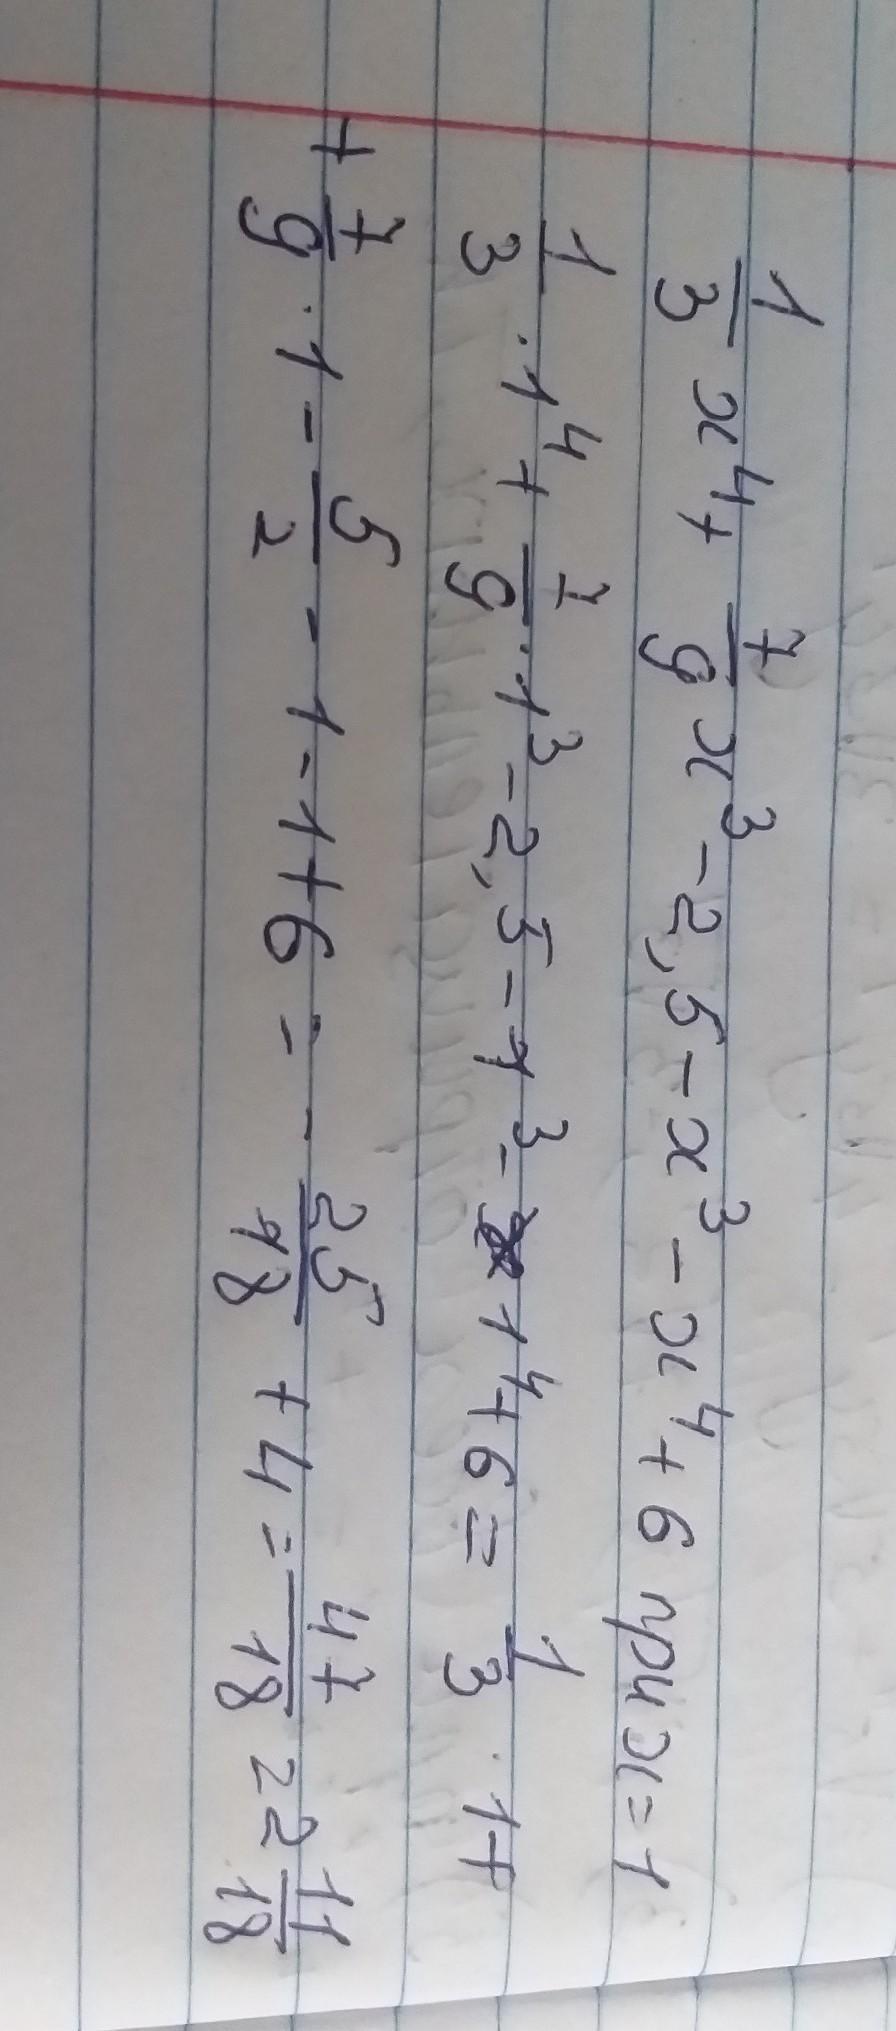 1/3 x⁴ + 7/9 x³ - 2,5 - x³ - x⁴ + 6 при x = 1
1/3 · 1⁴ + 7/9 · 1³ - 2,5 - 1³ - 1⁴ + 6 = 1/3 · 1 +
+ 7/9 · 1 - 5/2 - 1 - 1 + 6 = - 25/18 + 4 = 47/18 = 2 11/18